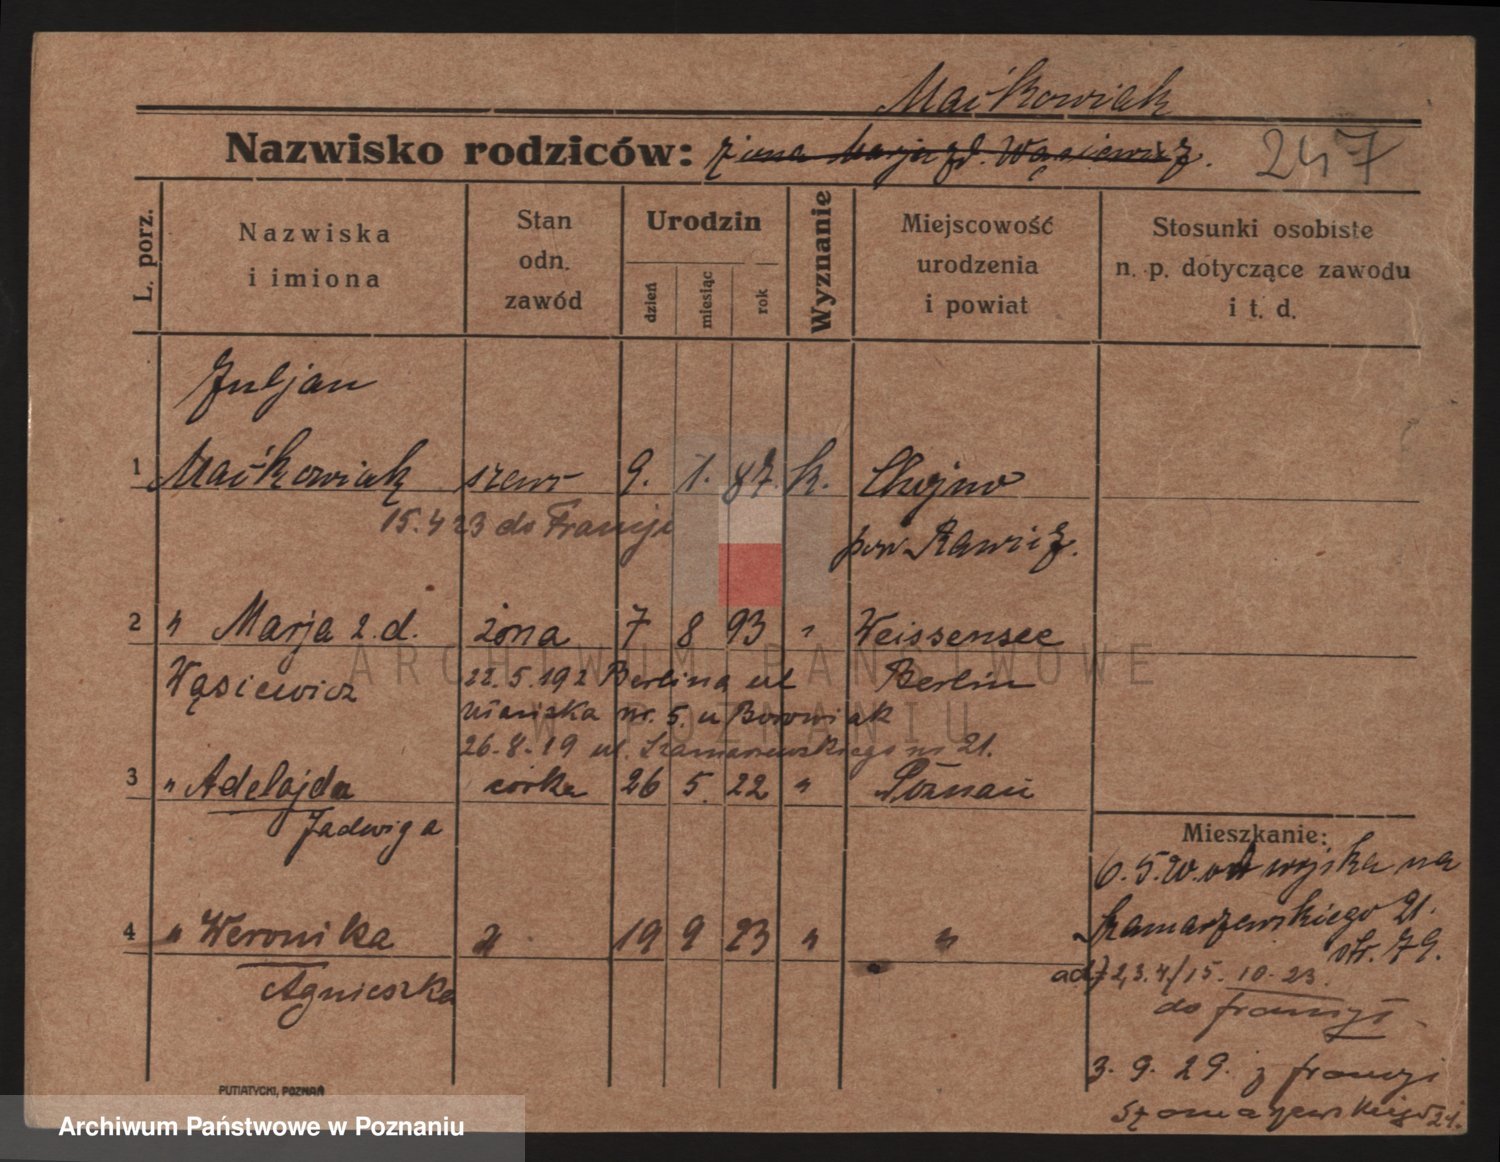 Maćkowiak
Nazwisko rodziców: żona Marja zd. Wąsiewicz.
247
L. porz.
Nazwiska
i imiona
Stan
odn.
zawód
Urodzin
dzień
miesiąc
rok
Wyznanie
Miejscowość
urodzenia
i powiat
Stosunki osobiste
n. p. dotyczące zawodu
i t. d.
Juljan
1 Maćkowiak szewc 9. 1. 87. k. Chojno
15.4 23 do Francji
pow Rawicz.
2 " Marja z.d. żona 7 8 93 " Weissensee
Wąsiewicz 22.5.192 Berlina ul Berlin
nr. 5. u Borowiak
26.8.19 ul. Szamarzewskiego nr 21.
3 " Adelajda córka 26 5. 22 " Poznań
Jadwiga
Mieszkanie:
6.5.20. od wojska na
Szamarzewskiego 21.
str. 79.
4 " Weronika " 19 9 23 " "
Agnieszka
ad 2,3.4/15. 10-23.
do francji
3. 9. 29. z francji
Szamarzewskiego 21.
PUTIATYCKI, POZNAŃ
ARCHIWUM PAŃSTWOWE
W POZNANIU
Archiwum Państwowe w Poznaniu